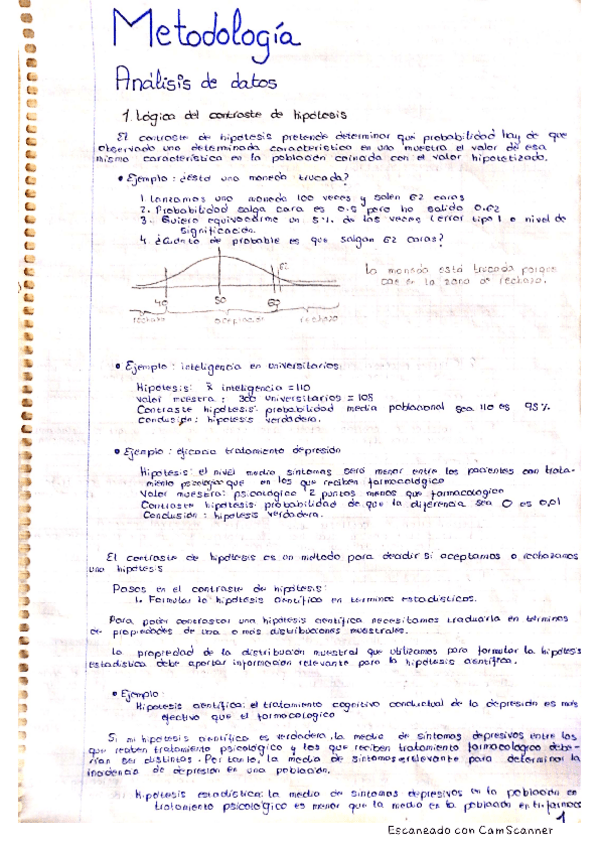 Metodología
Análisis de datos
1. Lógica del contraste de hipótesis
El contraste de hipótesis pretende determinar qué probabilidad hay de que
observado una determinada característica en una muestra el valor de esa
misma característica en la población coincida con el valor hipotetizado.
• Ejemplo: ¿está una moneda trucada?
1. Lanzamos una moneda 100 veces y salen 62 caras
2. Probabilidad salga cara es 0.5 pero ha salido 0.62
3. Quiero equivocarme un 5% de las veces (error tipo I o nivel de
significación.
4. ¿Cuánto de probable es que salgan 62 caras?
62
La moneda está trucada porque
cae en la zona de rechazo.
40 50 60
rechazo aceptación rechazo
• Ejemplo: inteligencia en universitarios
Hipótesis: x̄ inteligencia = 110
Valor muestra: 300 universitarios = 108
Contraste hipótesis: probabilidad media poblacional sea 110 es 95%.
Conclusión: hipótesis verdadera.
• Ejemplo: eficacia tratamiento depresión
Hipótesis: el nivel medio síntomas será menor entre los pacientes con trata-
miento psicológico que en los que reciben farmacológico
Valor muestra: psicológico 2 puntos menos que farmacológico
Contraste hipótesis: probabilidad de que la diferencia sea 0 es 0,01
Conclusión: hipótesis verdadera.
El contraste de hipótesis es un método para decidir si aceptamos o rechazamos
una hipótesis
Pasos en el contraste de hipótesis:
1. Formular la hipótesis científica en términos estadísticos.
Para poder contrastar una hipótesis científica necesitamos traducirla en términos
de propiedades de una o más distribuciones muestrales.
La propiedad de la distribución muestral que utilizamos para formular la hipótesis
estadística debe aportar información relevante para la hipótesis científica.
• Ejemplo:
Hipótesis científica: el tratamiento cognitivo conductual de la depresión es más
efectivo que el farmacológico
Si mi hipótesis científica es verdadera, la media de síntomas depresivos entre los
que reciben tratamiento psicológico y los que reciben tratamiento farmacológico debe-
rían ser distintos. Por tanto, la media de síntomas es relevante para determinar la
incidencia de depresión en una población.
Hipótesis estadística: la media de síntomas depresivos en la población en
tratamiento psicológico es menor que la media en la población en tr. farmaco
1
Escaneado con CamScanner